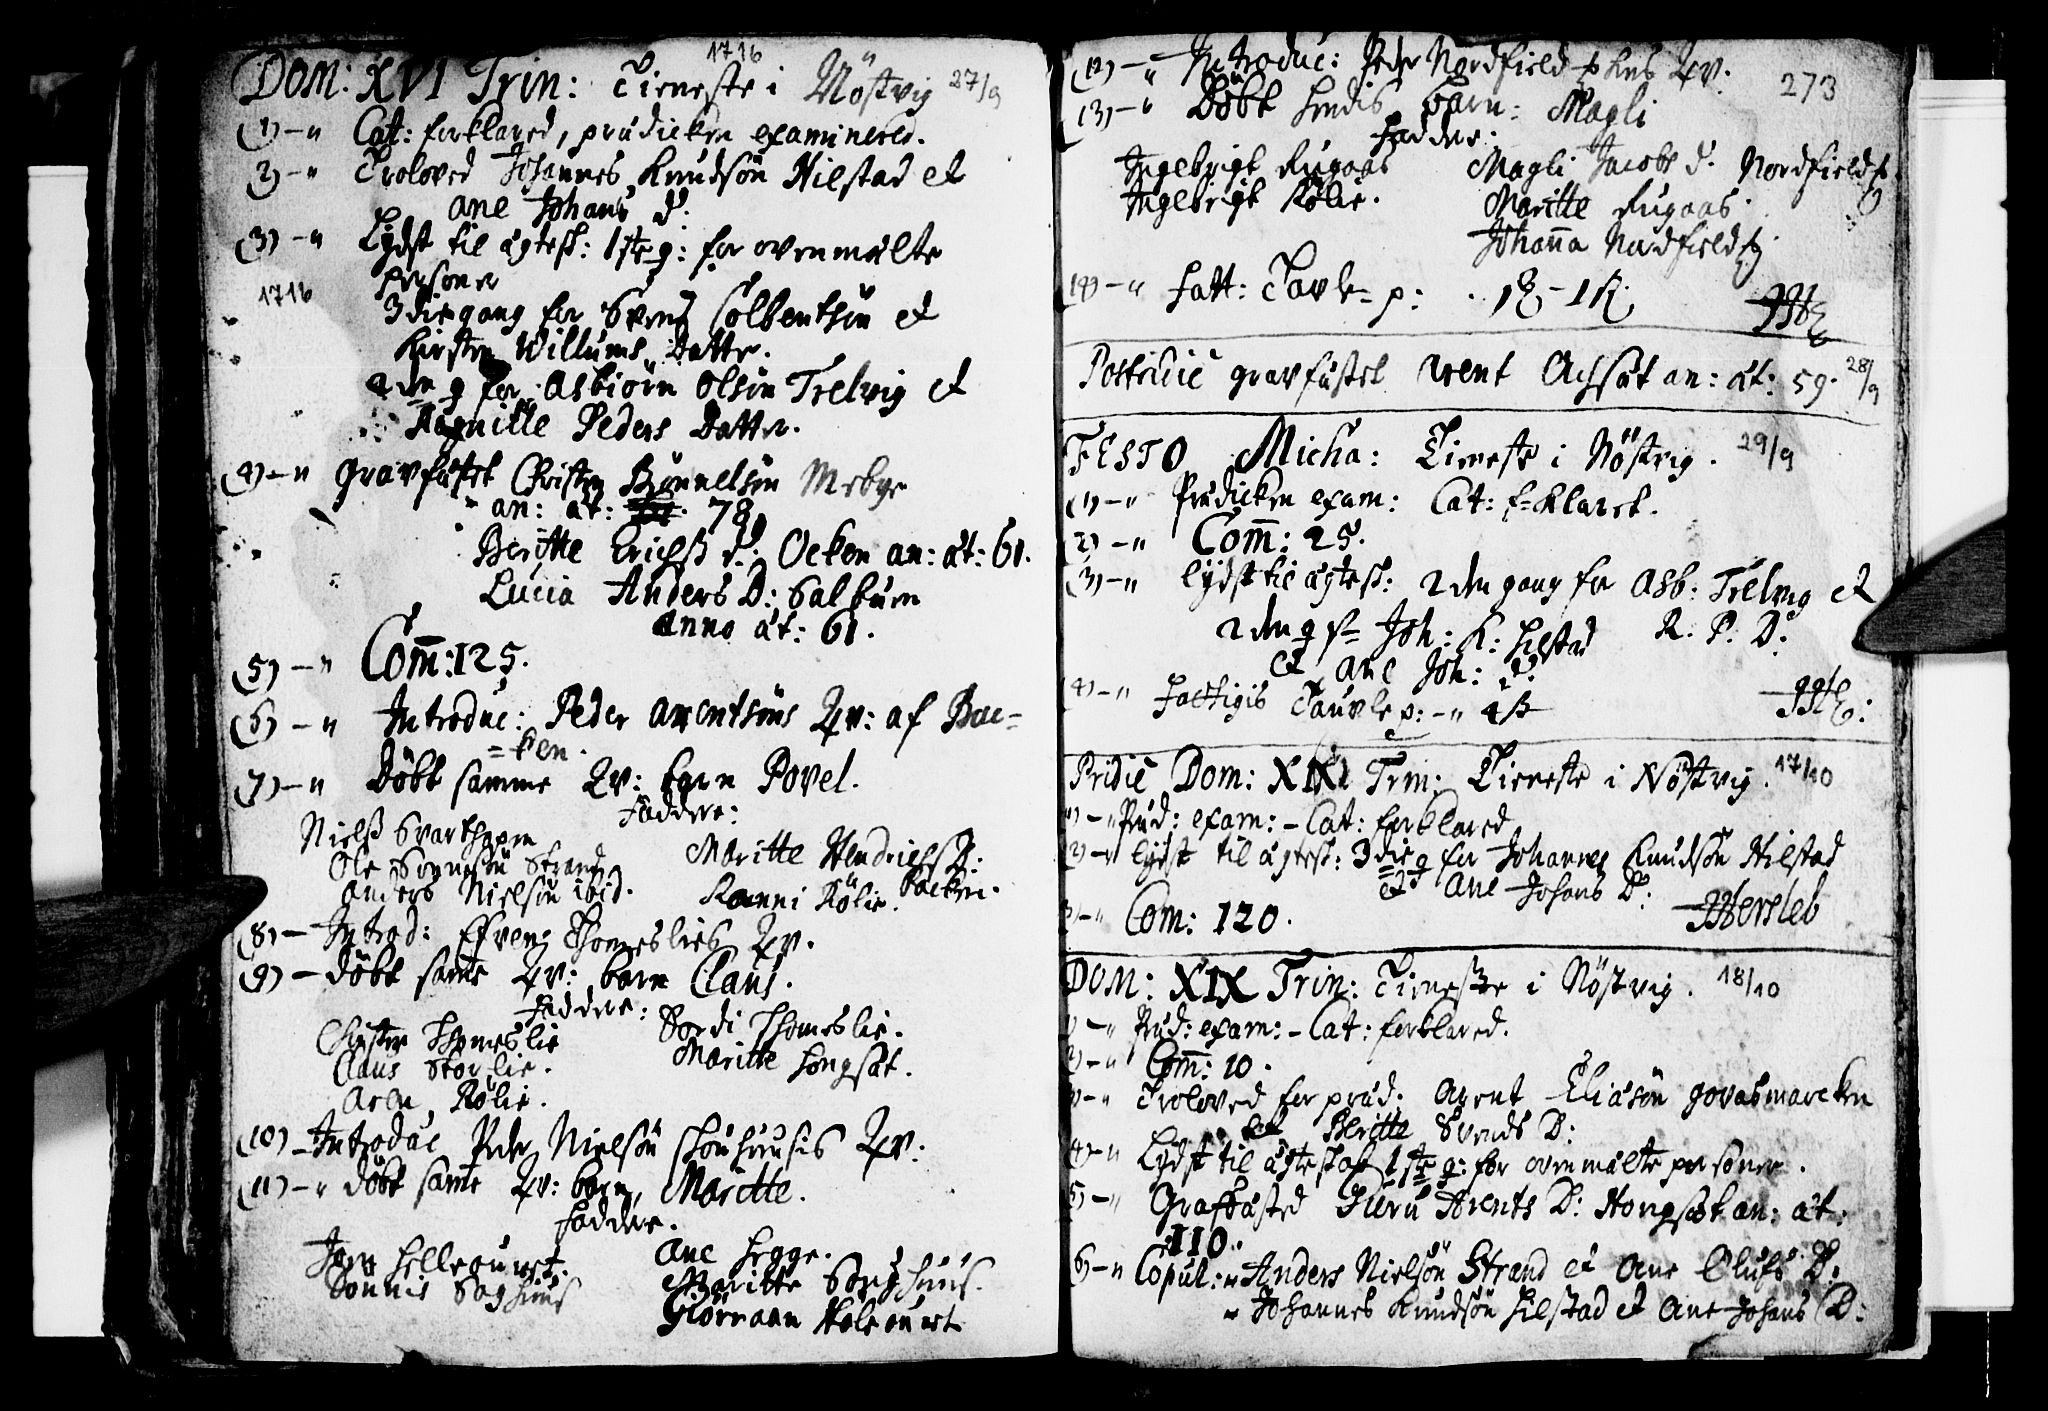 1716
DOM: XVI Trin: Tieneste i Nöstvig 27/9
(1) -" Cat: forklared, prædicken examinered.
2) -" Troloved Johannes Knudsön Hilstad et
Ane Johans d:
(3) -" Lydst til ägtesk: 1ste g: for ovenmälte
personer
1716
3die gang for Svend Colbentsön et
Kirsten Willums Datter.
2den g for Asbiörn Olsön Trelvig et
Ragnille Peders Datter.
(4) -" Gravfästet Christen Mebye
an: ät: 78
Beritte Erichs d: Ocken an: ät: 61.
Lucia Anders D: Salbuen
anno ät: 61.
(5) -" Com̄: 125.
(6) -" Introduc: Peder Arentsöns Qv: af Bac=
=ken.
7) -" Döbt samme Qv: barn Povel.
Faddere:
Niels Svarthopen
Ole Svensön Strand
Anders Nielsön ibid.
Maritte Hendrichs D:
Backen.
Ranni Kölie.
(8) - Introd: Thomeslies Qv.
(9) - döbt samē Qv: barn Claus.
Faddere:
Christen Thomeslie
Claus Storlie.
Aren Kölie.
Sordi Thomeslie.
Maritte Hongsät.
(10) - Introduc Peder Nielsön Qv:
(11) -" döbt samē Qv: barn, Maritte.
Faddere.
Jon
Sonnis Soghuus
Ane Hegge.
Maritte Soghuus.
273
(12) -" Introduc: Peder Nordfield Qv.
13) -" Döbt hendis barn: Magli
Faddere:
Ingebrigt Rugaas
Ingebrigt Kölie.
Magli Jacobs d. Nordfields
Maritte Rugaas.
Johanna Nordfields
14) -" Fatt: Tavle p:
Postridie gravfästet Arent Achsät an: ät: 59. 28/9
FESTO Micha: Tieneste i Nöstvig. 29/9
(1) -" Prædicken exam: Cat: f-klaret.
2) -" Com̄: 25.
(3) -" lydst til ägtesk: 2den gang for Asb: Trelvig et
R. P. D:
2den g f- Joh: K: Hilstad
et Ane Joh: d:
(4) -" Fattigis Tauvle p: -" 4ß
Pridie Dom: XIX Trin: Tieneste i Nöstvig. 17/10
1) -" Præd: exam: - Cat: forklared
(2) -" lydst til ägtesk: 3die g for Johannes Knudsön Hilstad
et Ane Johans D:
3) -" Com: 120.
Hersleb
DOM: XIX Trin: Tieneste i Nöstvig. 18/10
1) -" Præd: exam: - Cat: forklared.
2) -" Com̄: 10.
3) -" Troloved for præd: Arent Eliasön Govasmarcken
et Beritte Svends D:
4) -" Lydst til ägteskab 1ste g: for ovenmälte personer.
5) -" Grafkasted Arents D: Hongsät an: ät:
110.
6) -" Copul: " Anders Nielsön Strand et Ane Olufs D:
" Johannes Knudsön Hilstad et Ane Johans D: